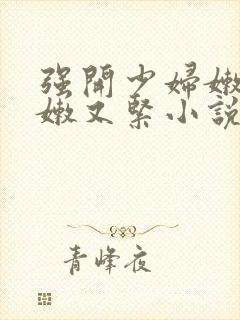 强開少婦嫩
嫩又緊小說
青峰夜